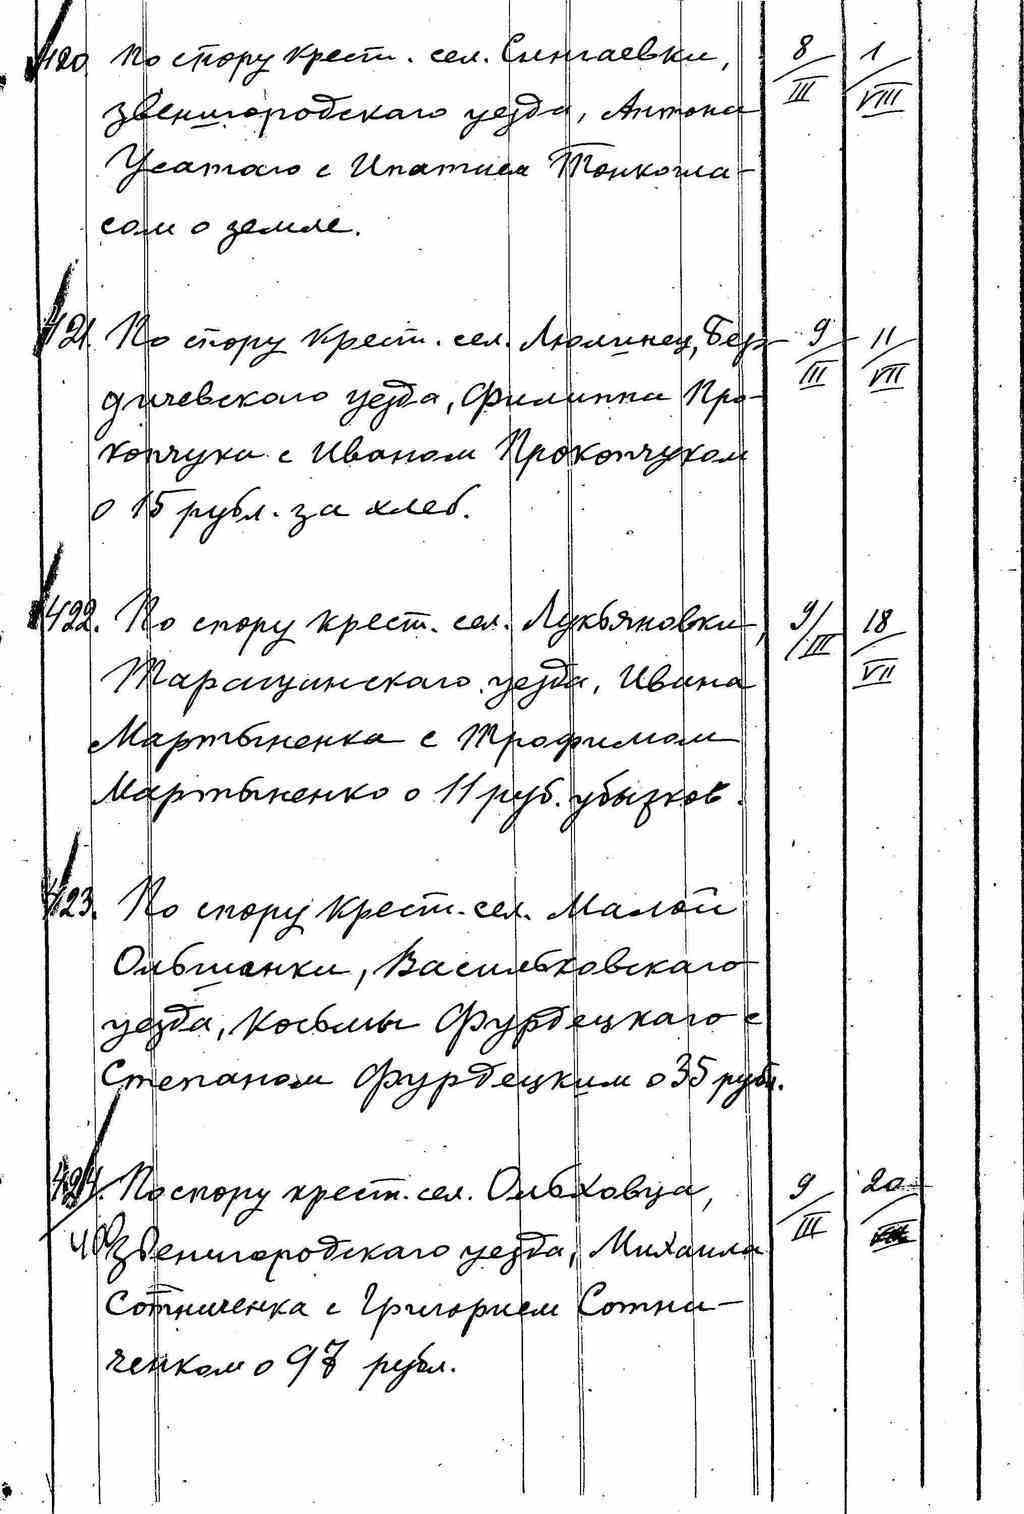 420. По спору крест. сел. Сингаевки, 8/III 1/VIII
Звенигородскаго уезда, Антона
Усатаго с Ипатием Тонкогла-
сом о земле.
421. По спору крест. сел. Люлинец, Бер- 9/III 11/VII
дичевскаго уезда, Филиппа Про-
копчука с Иваном Прокопчуком
о 15 рубл. за хлеб.
422. По спору крест. сел. Лукьяновки, 9/III 18/VII
Таращинскаго уезда, Ивана
Мартыненка с Трофимом
Мартыненко о 11 руб. убытков.
423. По спору крест. сел. Малой
Ольшанки, Васильковскаго
уезда, Косьмы Фурдецкаго с
Степаном Фурдецким о 35 рубл.
424. По спору крест. сел. Ольховца, 9/III 20
Звенигородскаго уезда, Михаила
Сотниченка с Григорием Сотни-
ченком о 97 рубл.